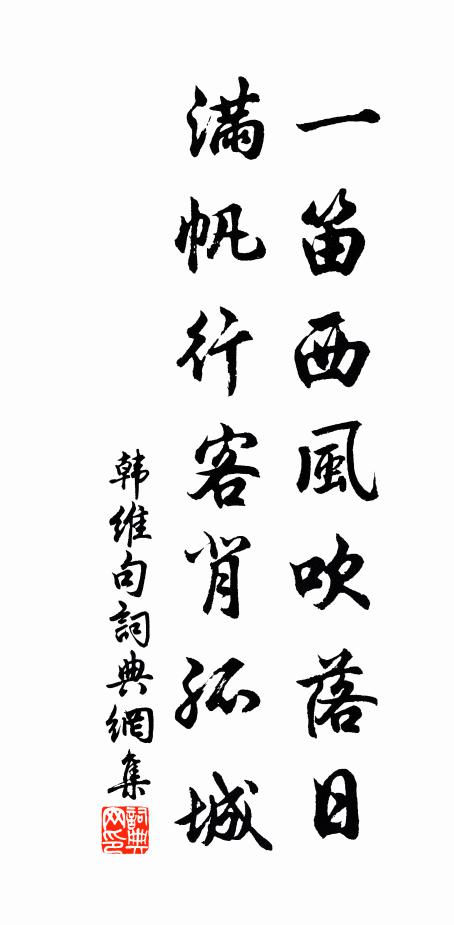 一笛西風吹落日
滿帆行客背孤城
韩維句詞典網集
詞典网印